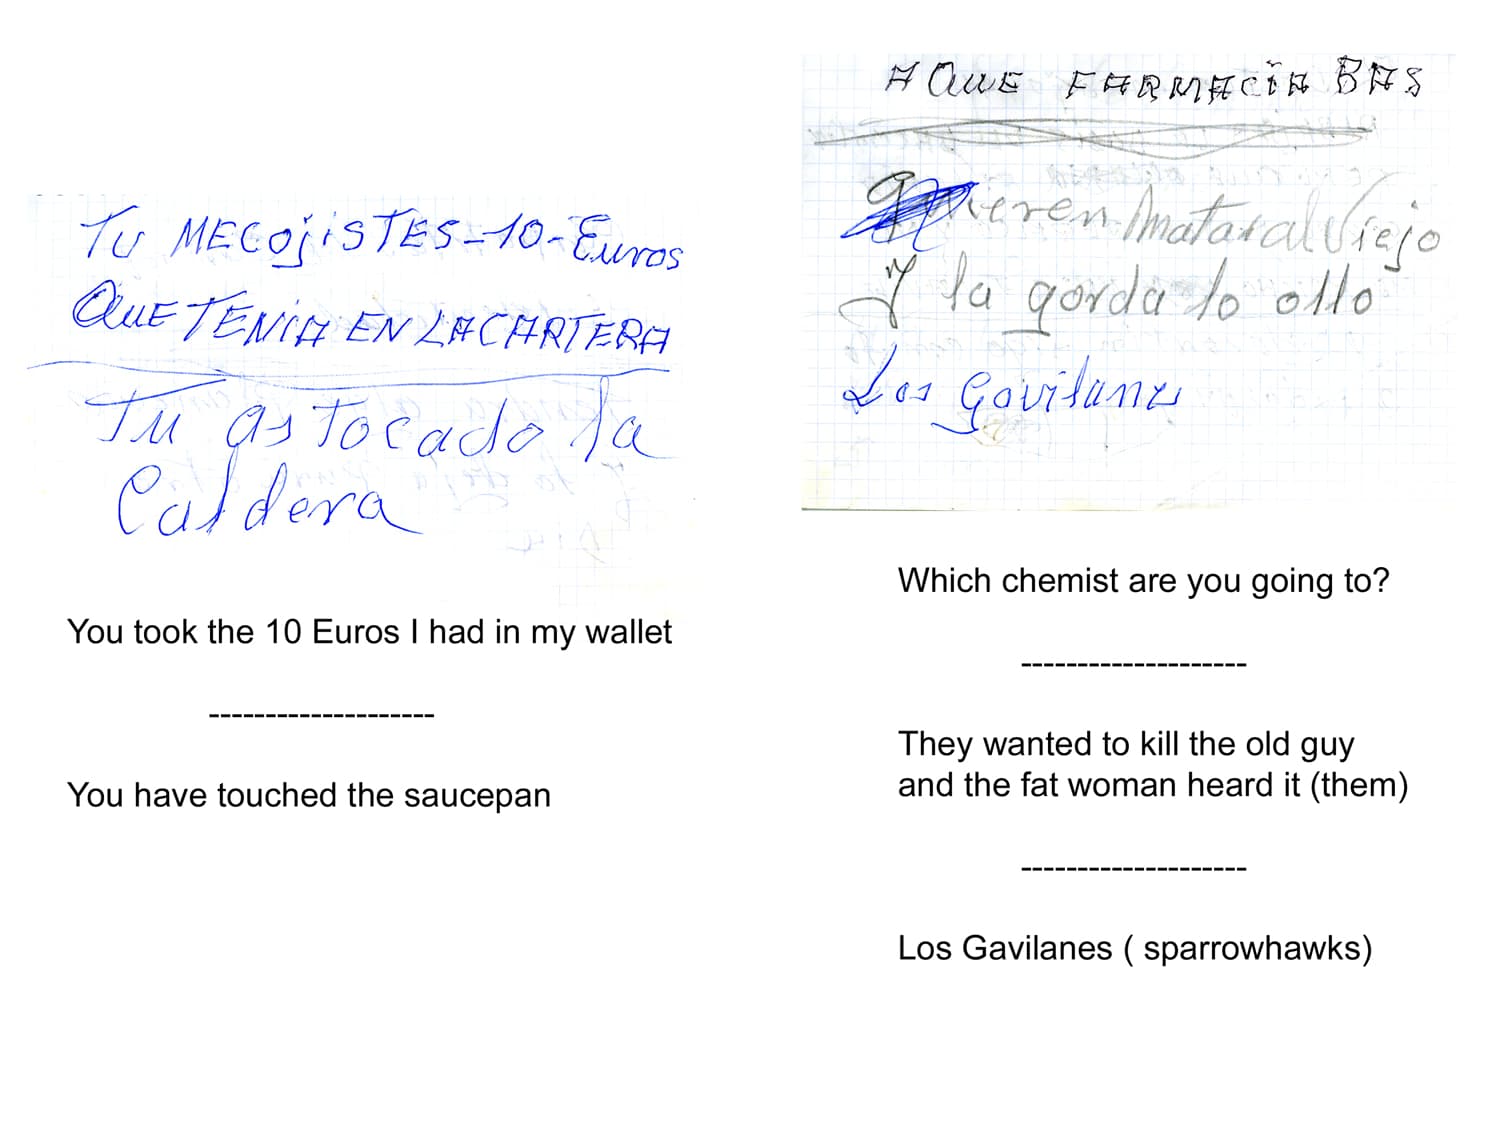 TU MECOjiSTES-10-Euros
QUE TENIA EN LACARTERA
Tu as Tocado la
Caldera
You took the 10 Euros I had in my wallet
--------------------
You have touched the saucepan
A QUE FARMACIA BAS
Quieren matar al Viejo
Y la gorda lo ollo
Los Gavilanes
Which chemist are you going to?
--------------------
They wanted to kill the old guy
and the fat woman heard it (them)
--------------------
Los Gavilanes ( sparrowhawks)